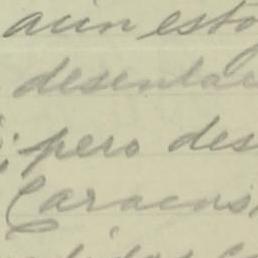 aún esto
desenlac
; pero des
Caracas,